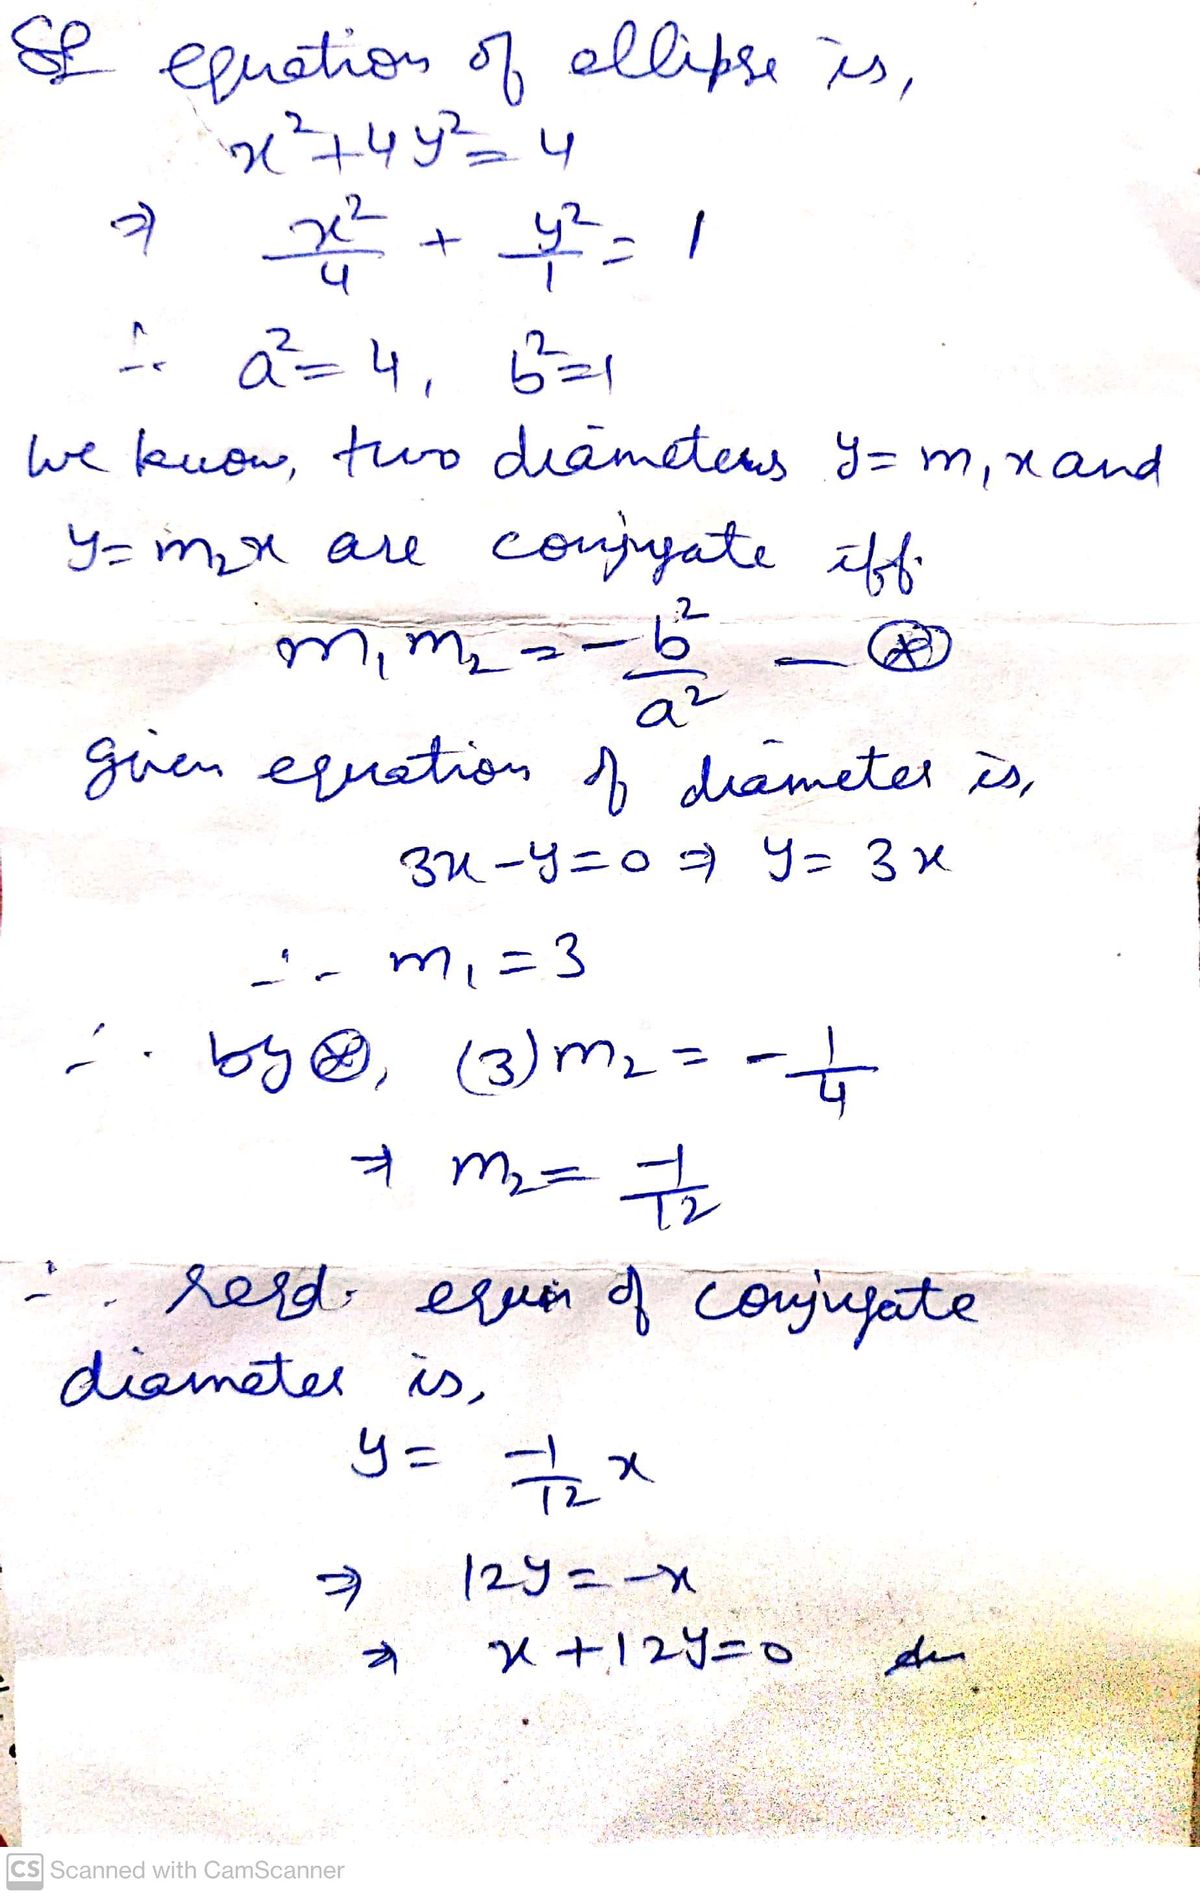 Sol equation of ellipse is,
x²+4y²=4
⇒ x²/4 + y²/1 = 1
∴ a²=4, b²=1
We know, two diameters y=m₁x and
y=m₂x are conjugate iff.
m₁m₂ = -b²/a² — ⊛
given equation of diameter is,
3x-y=0 ⇒ y=3x
∴ m₁=3
∴ by ⊛, (3)m₂ = -1/4
⇒ m₂ = -1/12
∴ reqd. equn of conjugate
diameter is,
y = -1/12 x
⇒ 12y=-x
⇒ x+12y=0
CS Scanned with CamScanner